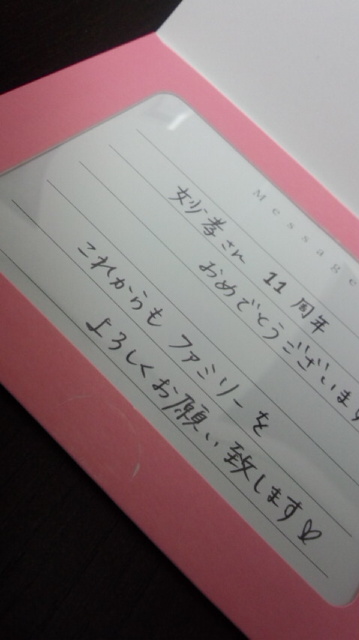 Message
妙孝さん 11周年
おめでとうございます
これからも ファミリーを
よろしくお願い致します♡